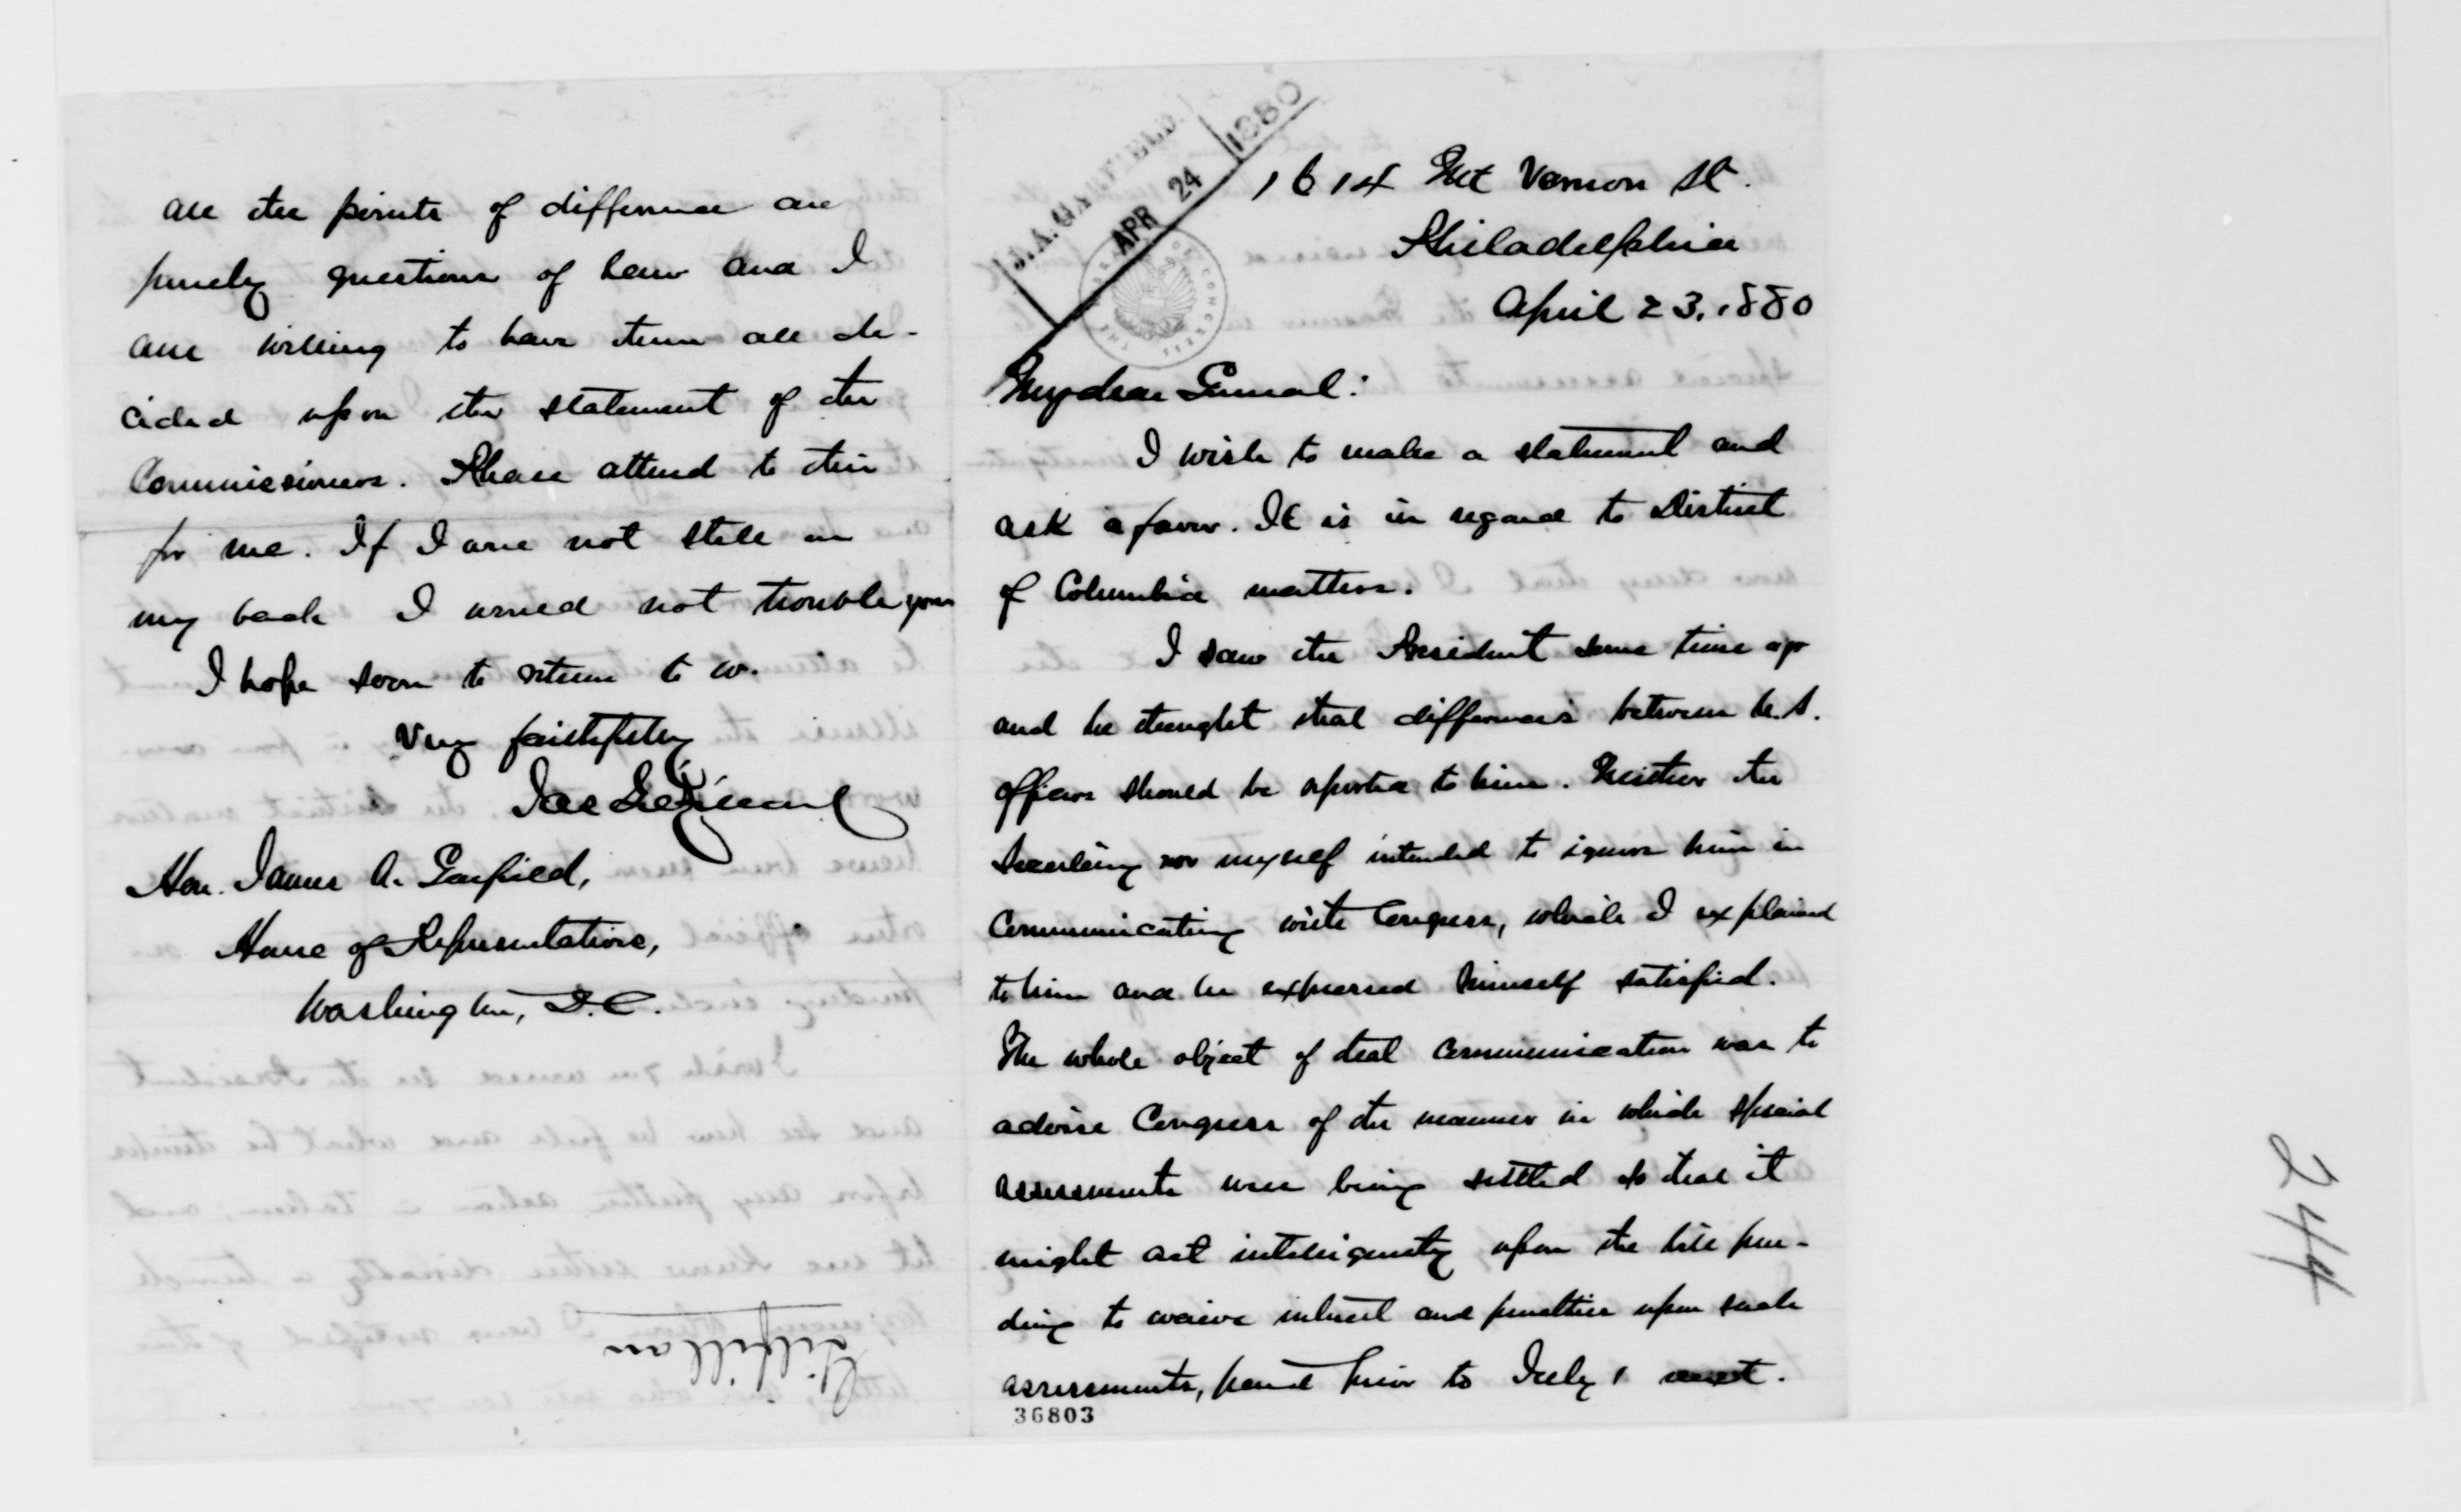 J. A. GARFIELD.
APR 24 1880
THE LIBRARY OF CONGRESS
1614 Mt Vernon St.
Philadelphia
April 23, 1880
My dear General:
I wish to make a statement and
ask a favor. It is in regard to District
of Columbia matters.
I saw the President some time ago
and he thought that differences between U.S.
officers should be reported to him. Neither the
Secretary nor myself intended to ignore him in
Communicating with Congress, which I explained
to him and he expressed himself satisfied.
The whole object of that Communication was to
advise Congress of the manner in which special
assessments were being settled so that it
might act intelligently upon the bill pen-
ding to waive interest and penalties upon such
assessments, paid prior to July 1 next.
36803
all the points of difference are
purely questions of law and I
am willing to have them all de-
cided upon the statement of the
Commissioners. Please attend to this
for me. If I were not still on
my back I would not trouble you
I hope soon to return to W.
Very faithfully
Jas Gilfillan
Hon. James A. Garfield,
House of Representatives,
Washington, D.C.
Gilfillan
244